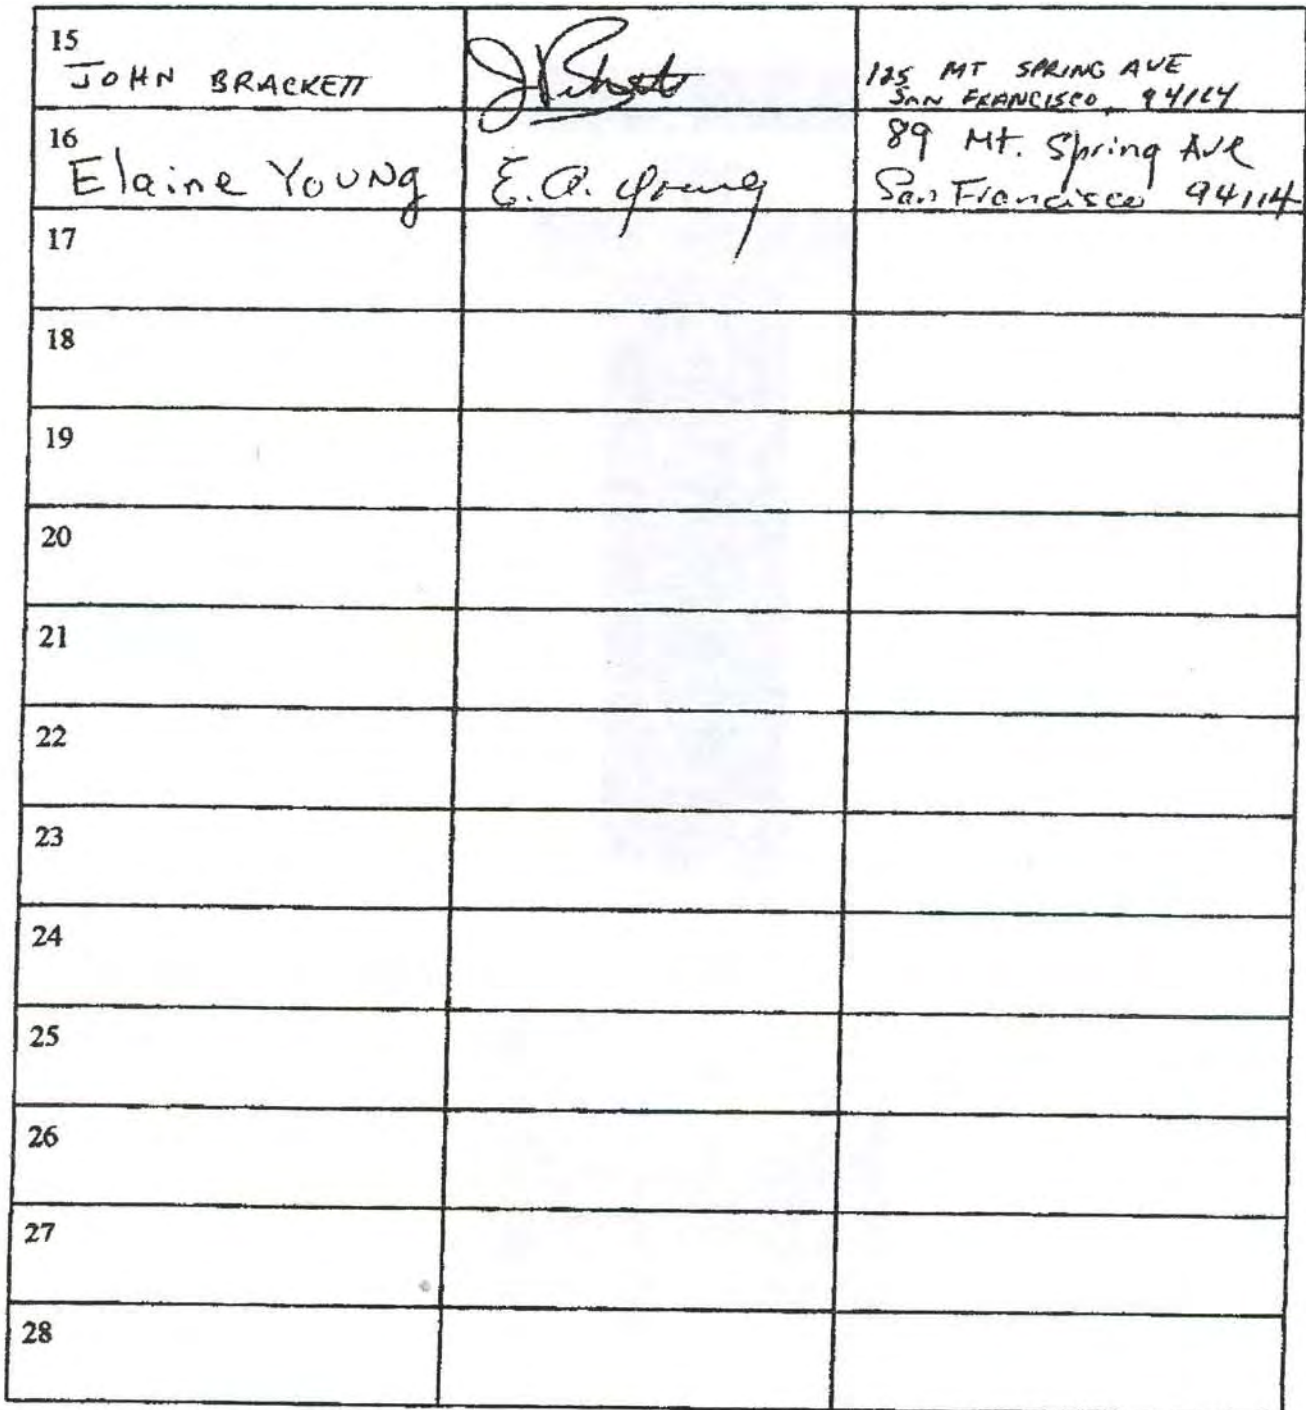 15
JOHN BRACKETT
125 MT SPRING AVE
SAN FRANCISCO 94114
16
Elaine Young
E. A. Young
89 Mt. Spring Ave
San Francisco 94114
17
18
19
20
21
22
23
24
25
26
27
28